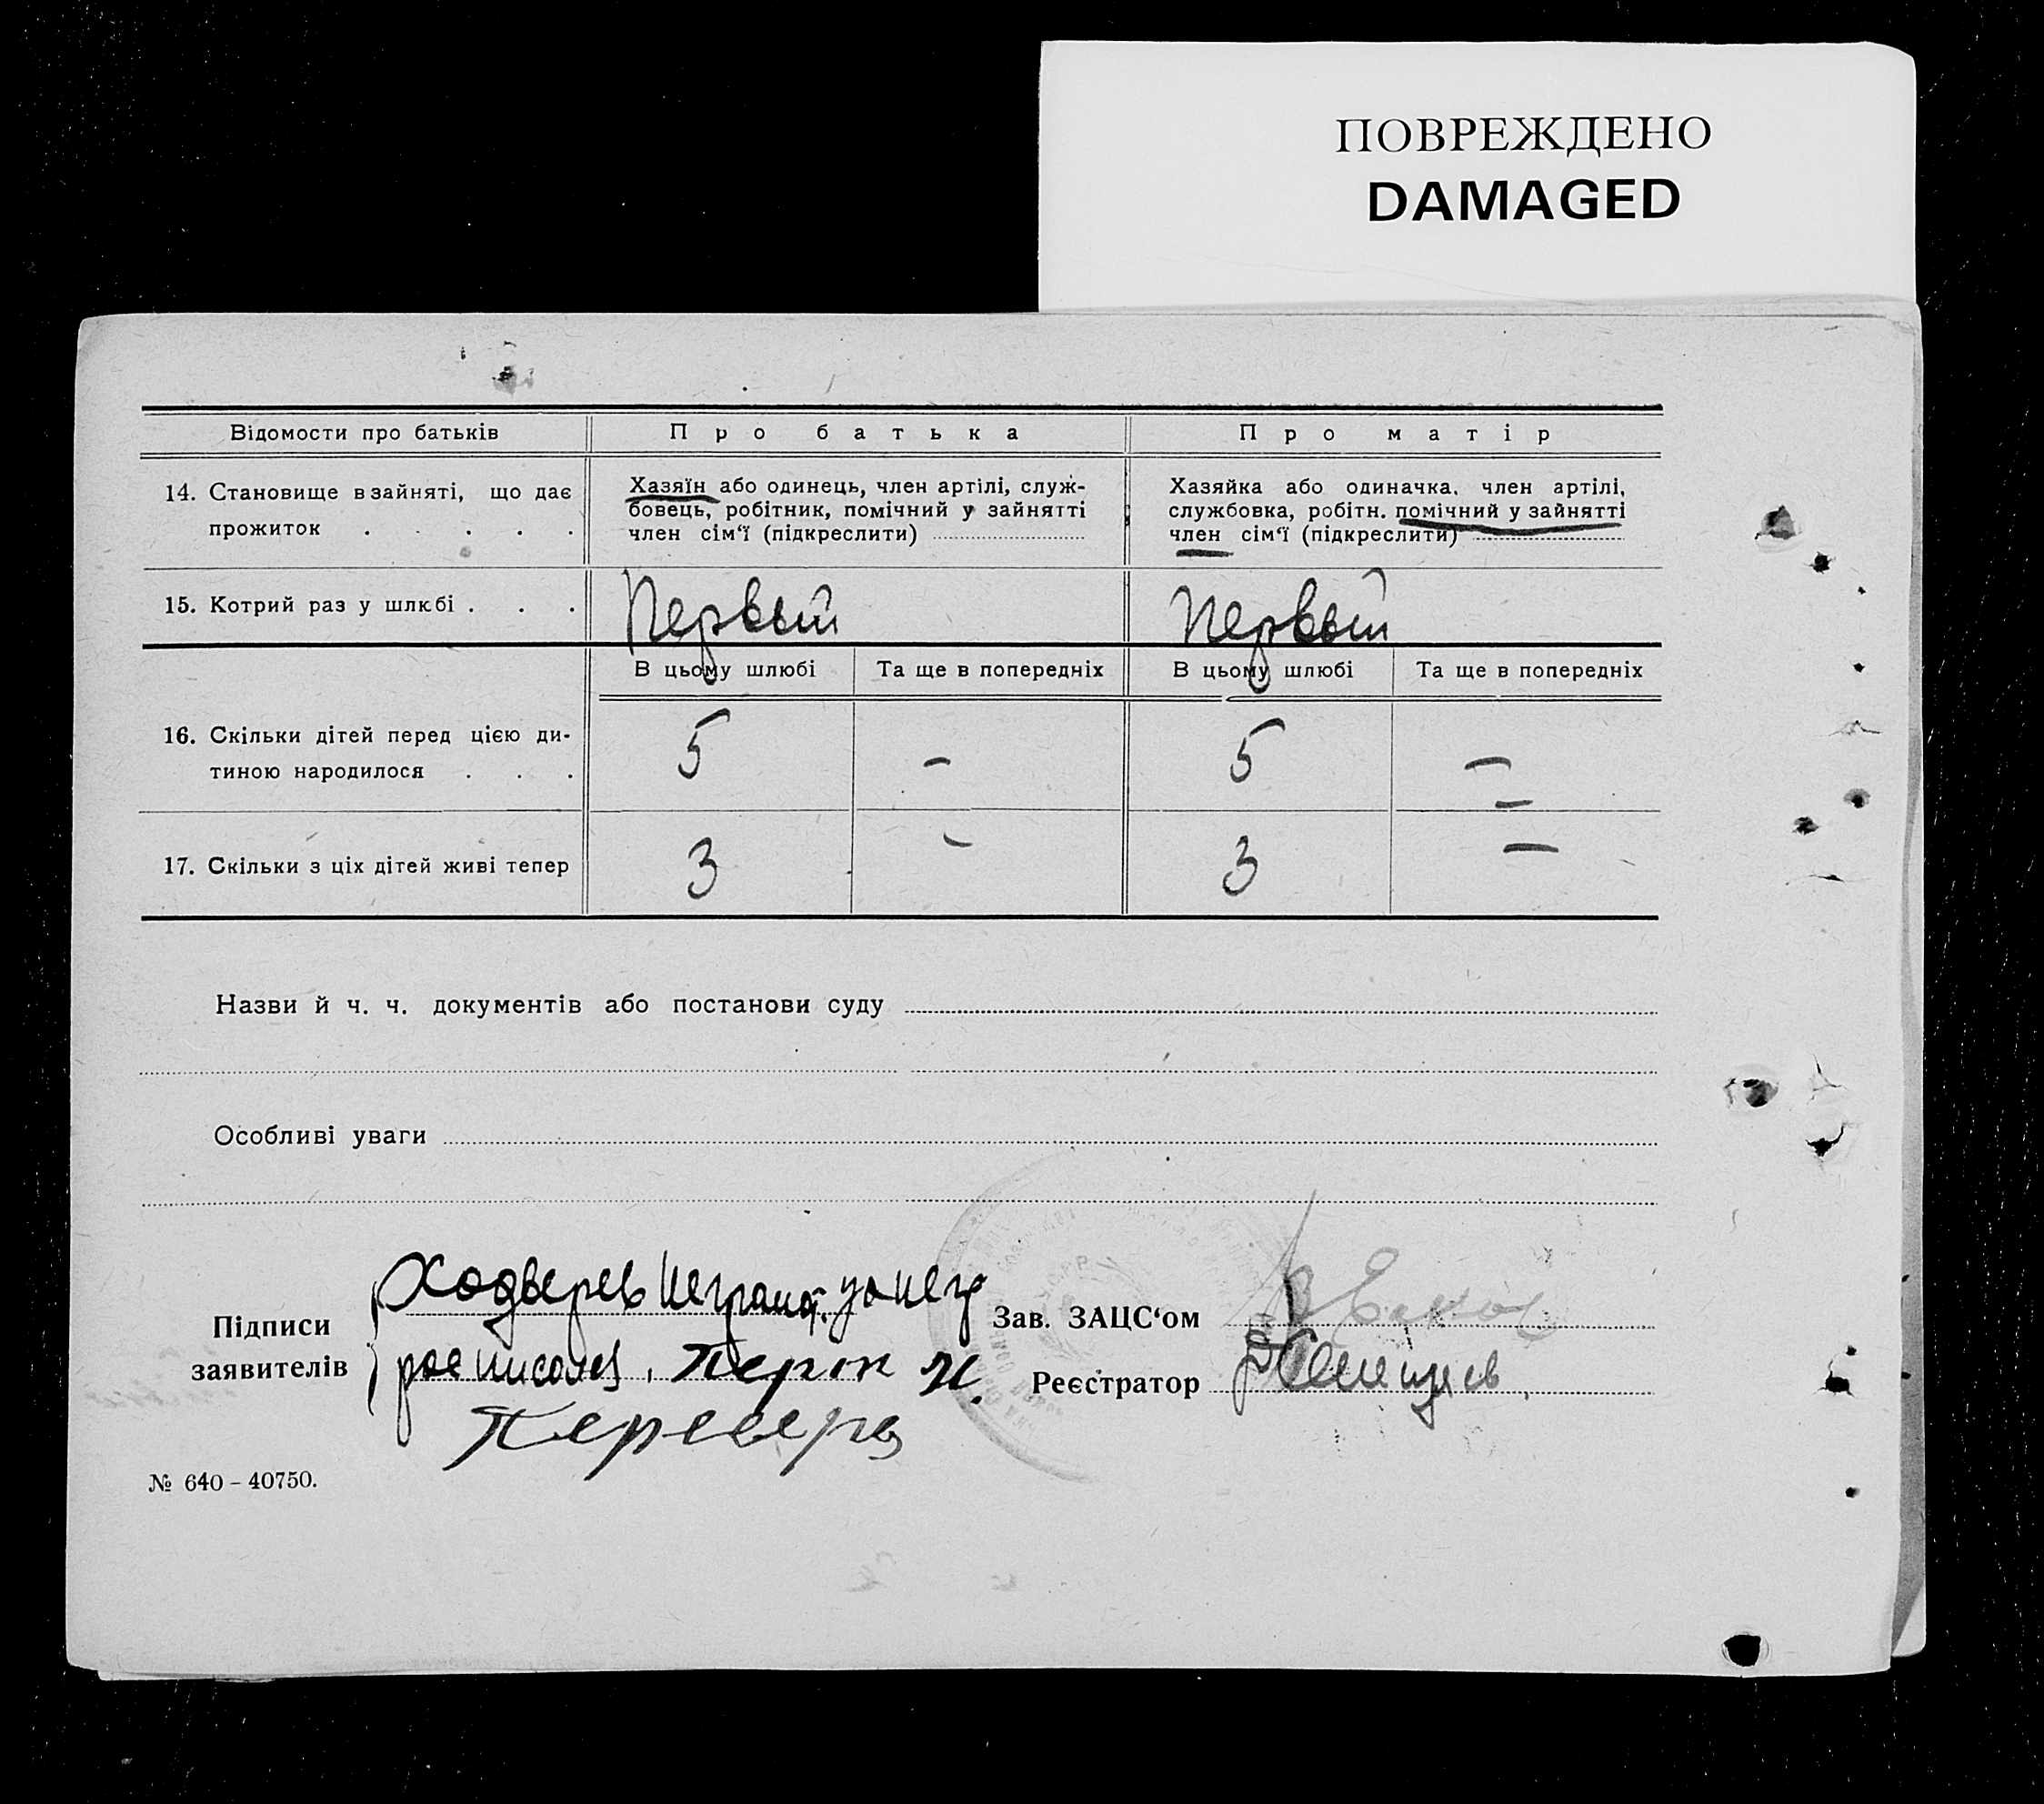 ПОВРЕЖДЕНО
DAMAGED
Відомости про батьків
Про батька
Про матір
14. Становище в зайняті, що дає
прожиток . . . . .
Хазяїн або одинець, член артілі, служ-
бовець, робітник, помічний у зайнятті
член сім'ї (підкреслити)
Хазяйка або одиначка, член артілі,
службовка, робітн. помічний у зайнятті
член сім'ї (підкреслити)
15. Котрий раз у шлюбі . . .
Первый
Первый
В цьому шлюбі
Та ще в попередніх
В цьому шлюбі
Та ще в попередніх
16. Скільки дітей перед цією ди-
тиною народилося . . .
5
–
5
–
17. Скільки з ціх дітей живі тепер
3
–
3
–
Назви й ч. ч. документів або постанови суду
Особливі уваги
Підписи
заявителів
Ходверев неграмот. за нег
росписалс,
Зав. ЗАЦС'ом
Реєстратор
№ 640 – 40750.